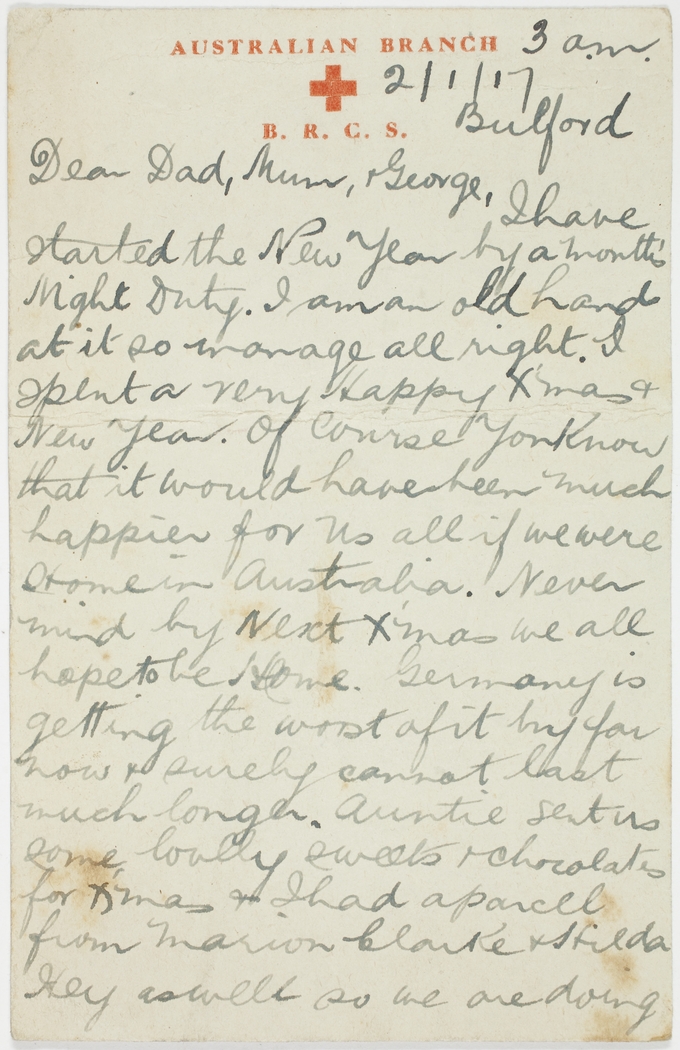 AUSTRALIAN BRANCH 3 a.m.
2/1/17
B. R. C. S. Bulford
Dear Dad, Mum, & George,
I have
started the New Year by a month's
Night Duty. I am an old hand
at it so manage all right. I
spent a very Happy X'mas &
New Year. Of Course You Know
that it would have been much
happier for us all if we were
Home in Australia. Never
mind by Next X'mas we all
hope to be Home. Germany is
getting the worst of it by far
now & surely cannot last
much longer. Auntie sent us
some lovely sweets & chocolates
for X'mas & I had a parcel
from Marion Clarke & Hilda
Hey as well so we are doing